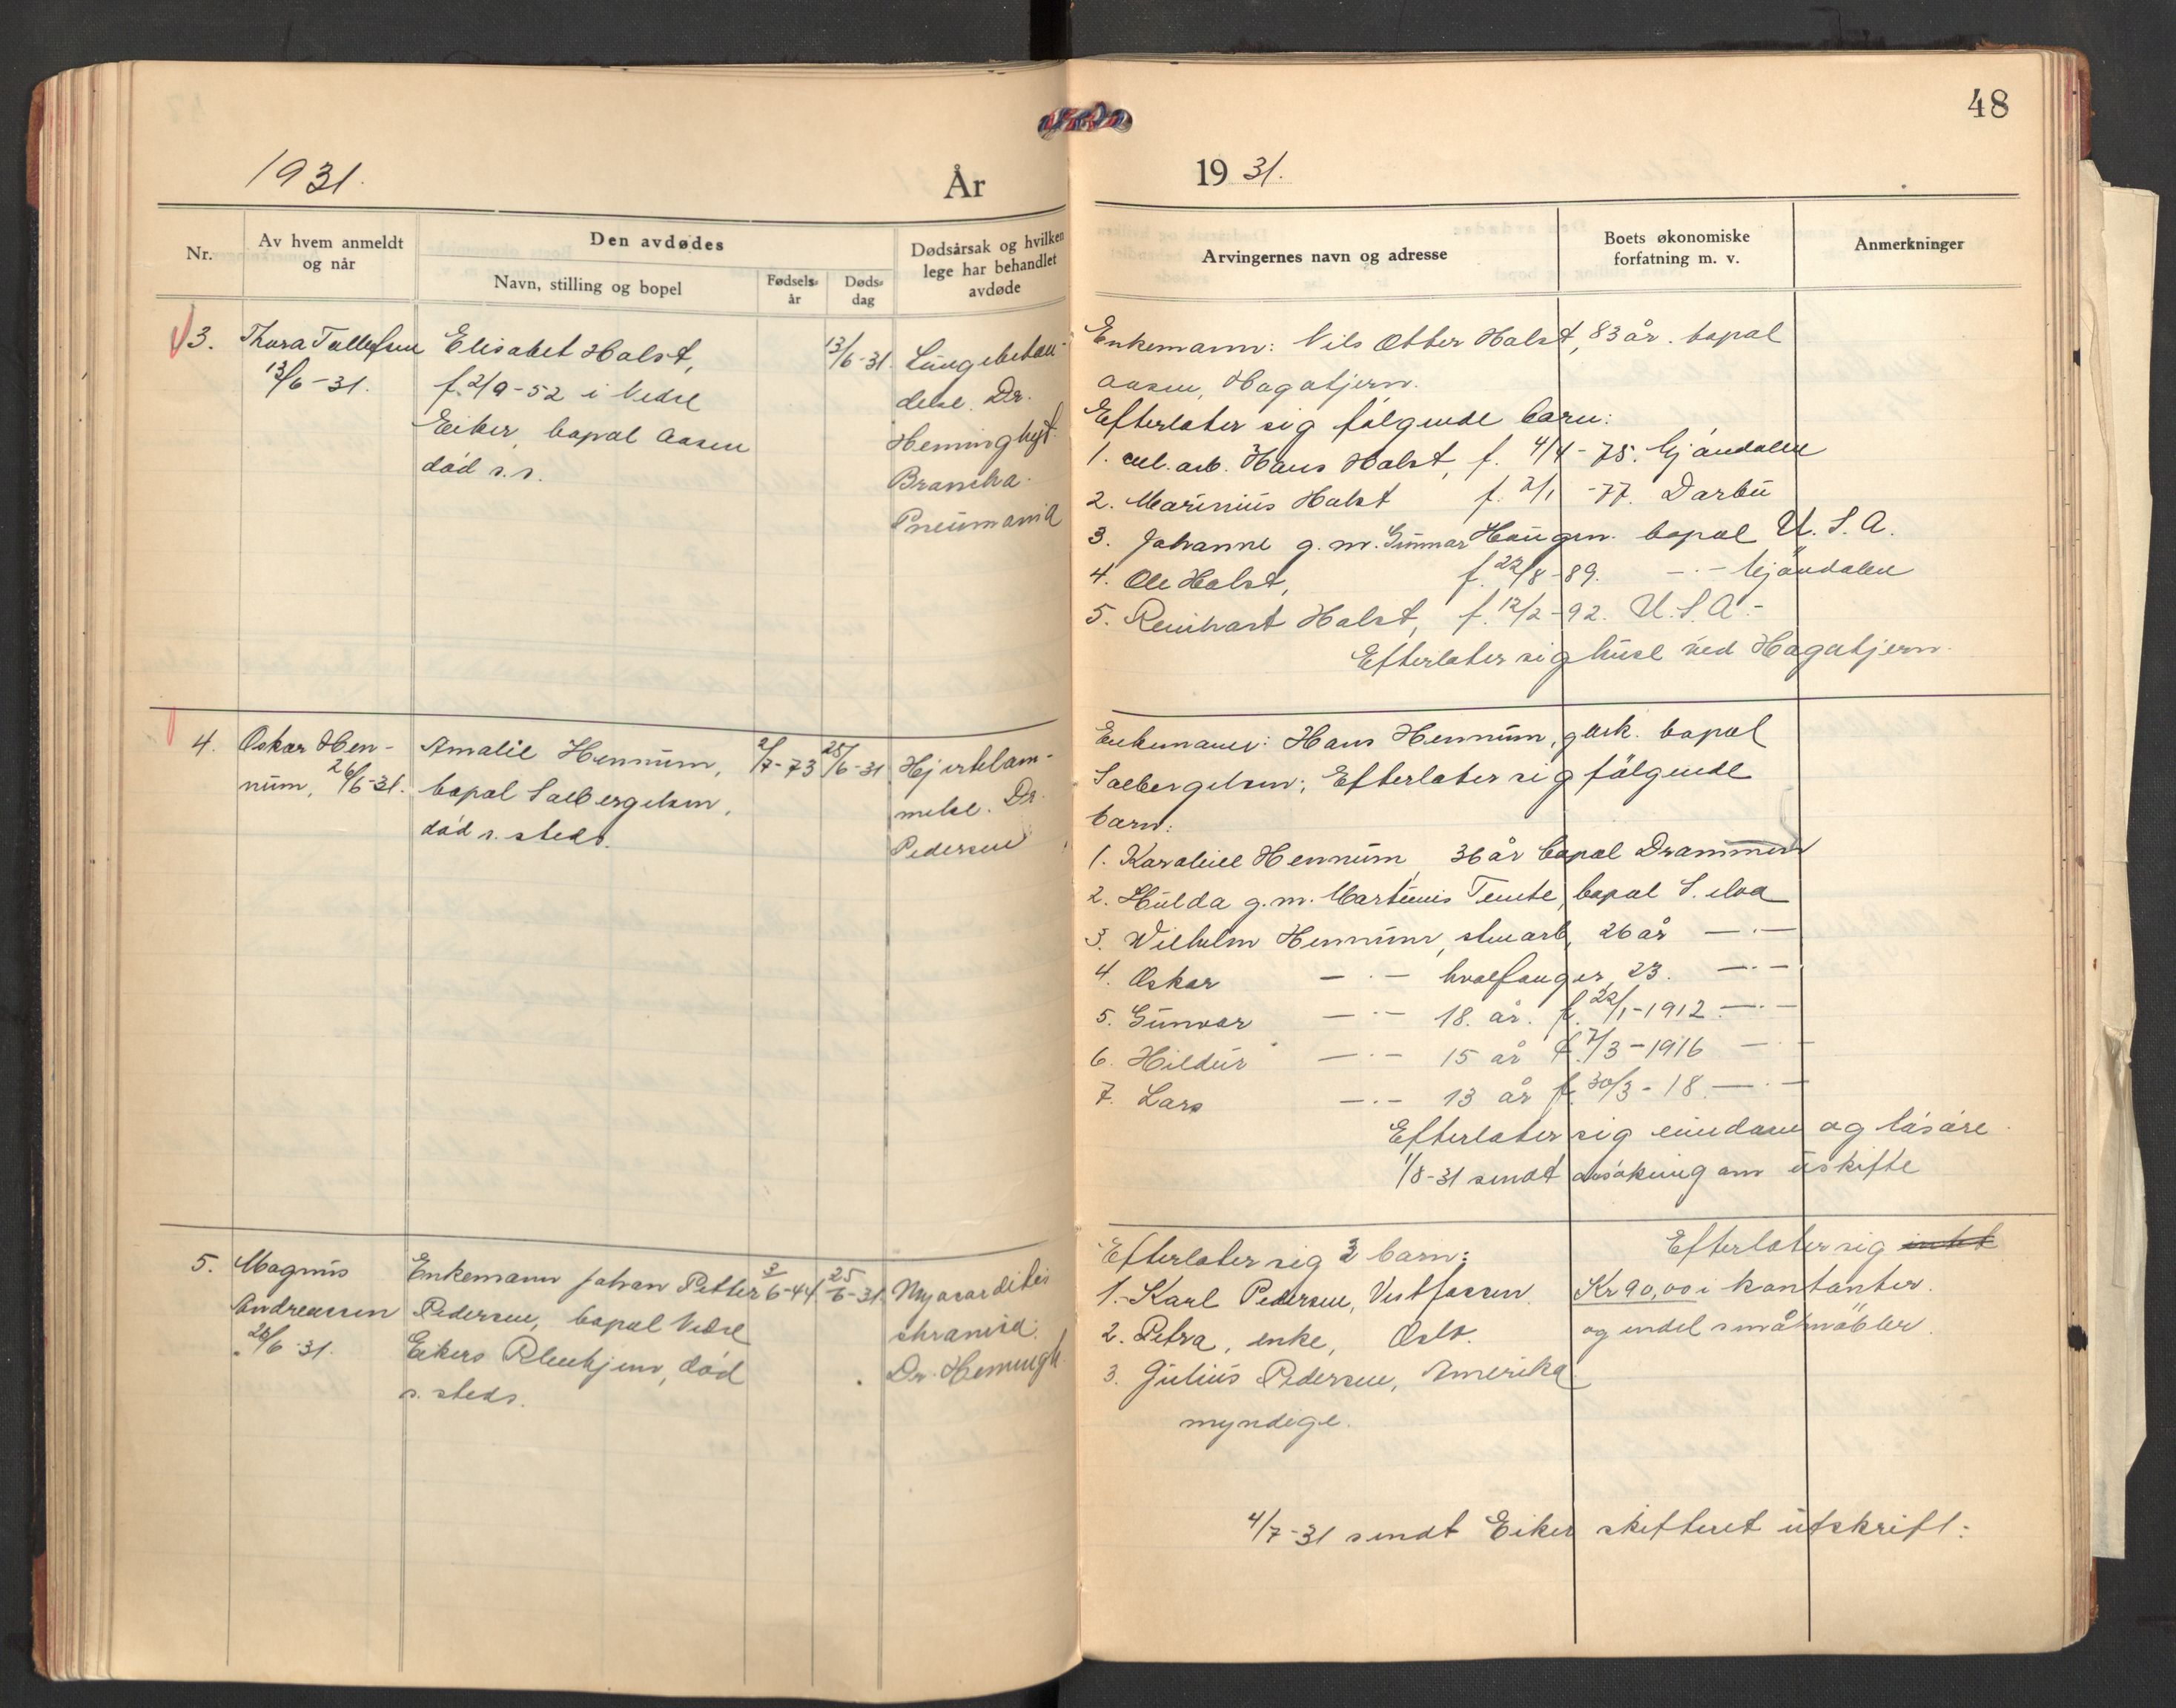 48
1931.
År
19 31.
Nr.
Av hvem anmeldt
og når
Den avdødes
Navn, stilling og bopel
Fødsels-
år
Døds-
dag
Dødsårsak og hvilken
lege har behandlet
avdøde
Arvingernes navn og adresse
Boets økonomiske
forfatning m. v.
Anmerkninger
3.
Thora Tollefsen
13/6-31.
Elisabet Holst,
f. 2/9-52 i Nedre
Eiker, bopæl Aasen
död s.s.
13/6-31
Lungebetæn-
delse. Dr.
Heminghyt.
Broncho-
Pneumonia
Enkemann: Nils Otter Holst, 83 år. bopæl
Aasen, Hagatjern.
Efterlater sig følgende barn:
1. cel. arb. Hans Holst, f. 4/4-75. Mjöndalen
2. Marinius Holst f. 2/1-77. Darbu
3. Johanne g. m. Gunnar Haugen. bopæl U.S.A.
4. Ole Holst, f. 22/8-89. —·— Mjöndalen
5. Reinhart Holst, f. 12/2-92. U.S.A.-
Efterlater sig huse ved Hagatjern.
4.
Oskar Hen-
num, 26/6-31.
Amalie Hennum,
bopæl Solbergelven,
död s. steds.
2/7-73
25/6-31
Hjertelam-
melse. Dr.
Pedersen
Enkemann: Hans Hennum, gbrk. bopæl
Solbergelven; Efterlater sig følgende
barn:
1. Karoline Hennum 36 år bopæl Drammen
2. Hulda g.m. Martinius Temte, bopæl S. elva
3. Wilhelm Hennum, stuearb, 26 år —·—
4. Oskar —·— hvalfanger, 23. —·—
5. Gunvor —·— 18. år. f. 22/1-1912. —·—
6. Hildur —·— 15 år f. 7/3-1916 —·—
7. Lars —·— 13 år f. 30/3-18. —·—
Efterlater sig eiendom og lösöre.
1/8-31 sendt ansökning om uskifte
5.
Magnus
Andreassen
26/6-31.
Enkemann Johan Petter
Pedersen, bopæl Nedre
Eikers Pleiehjem, död
s. steds.
3/6-44.
25/6-31.
Myocarditis
chronica.
Dr. Hemingh.
Efterlater sig 3 barn:
1. Karl Pedersen, Vestfossen.
2. Petra, enke, Oslo.
3. Julius Pedersen, Amerika
myndige.
Efterlater sig intet
Kr 90,00 i kontanter.
og endel småmöbler.
4/7-31 sendt Eiker skifteret utskrift.